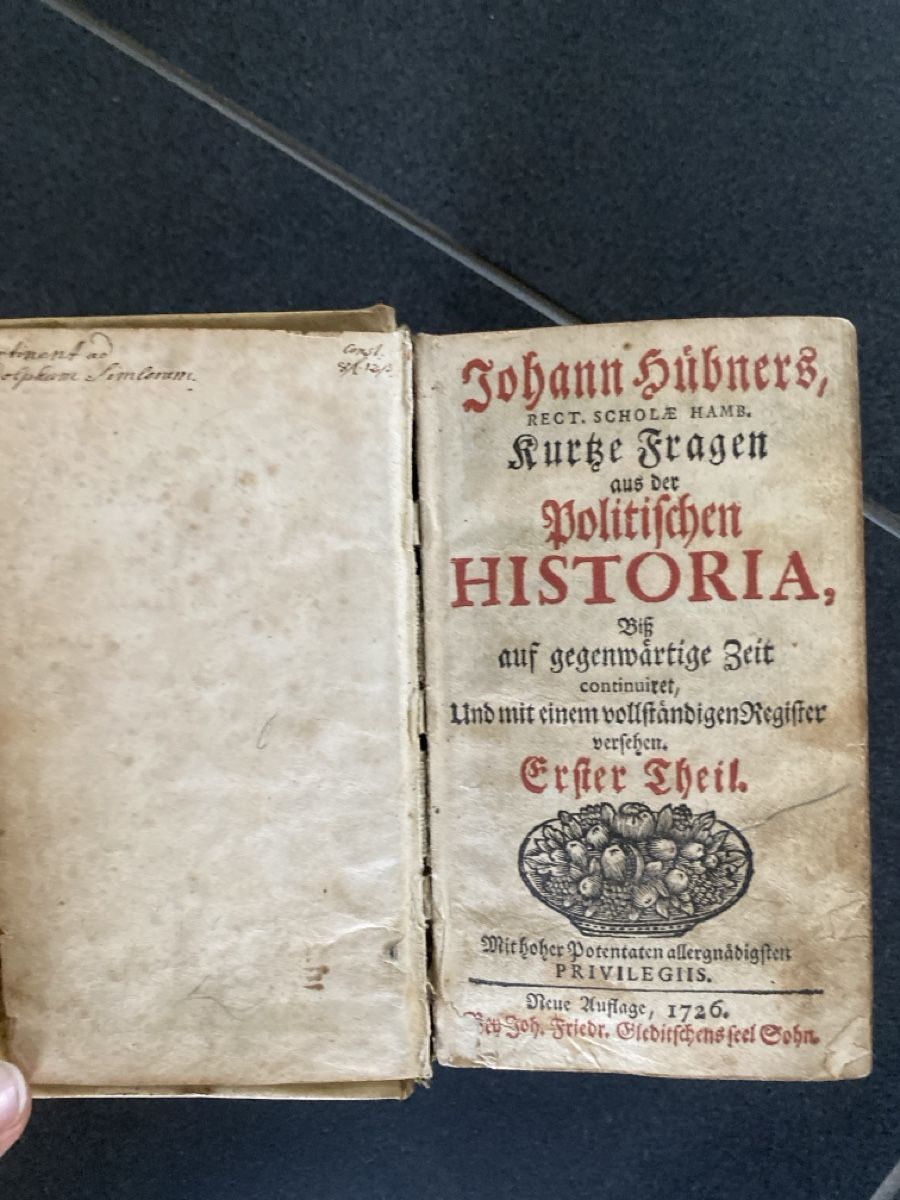 rtinent ad
olphum Simlerum.
Const.
Johann Hübners,
RECT. SCHOLÆ HAMB.
Kurtze Fragen
aus der
Politischen
HISTORIA,
Biß
auf gegenwärtige Zeit
continuiret,
Und mit einem vollständigen Register
versehen.
Erster Theil.
Mit hoher Potentaten allergnädigsten
PRIVILEGIIS.
Neue Auflage, 1726.
Bey Joh. Friedr. Gleditschens seel Sohn.